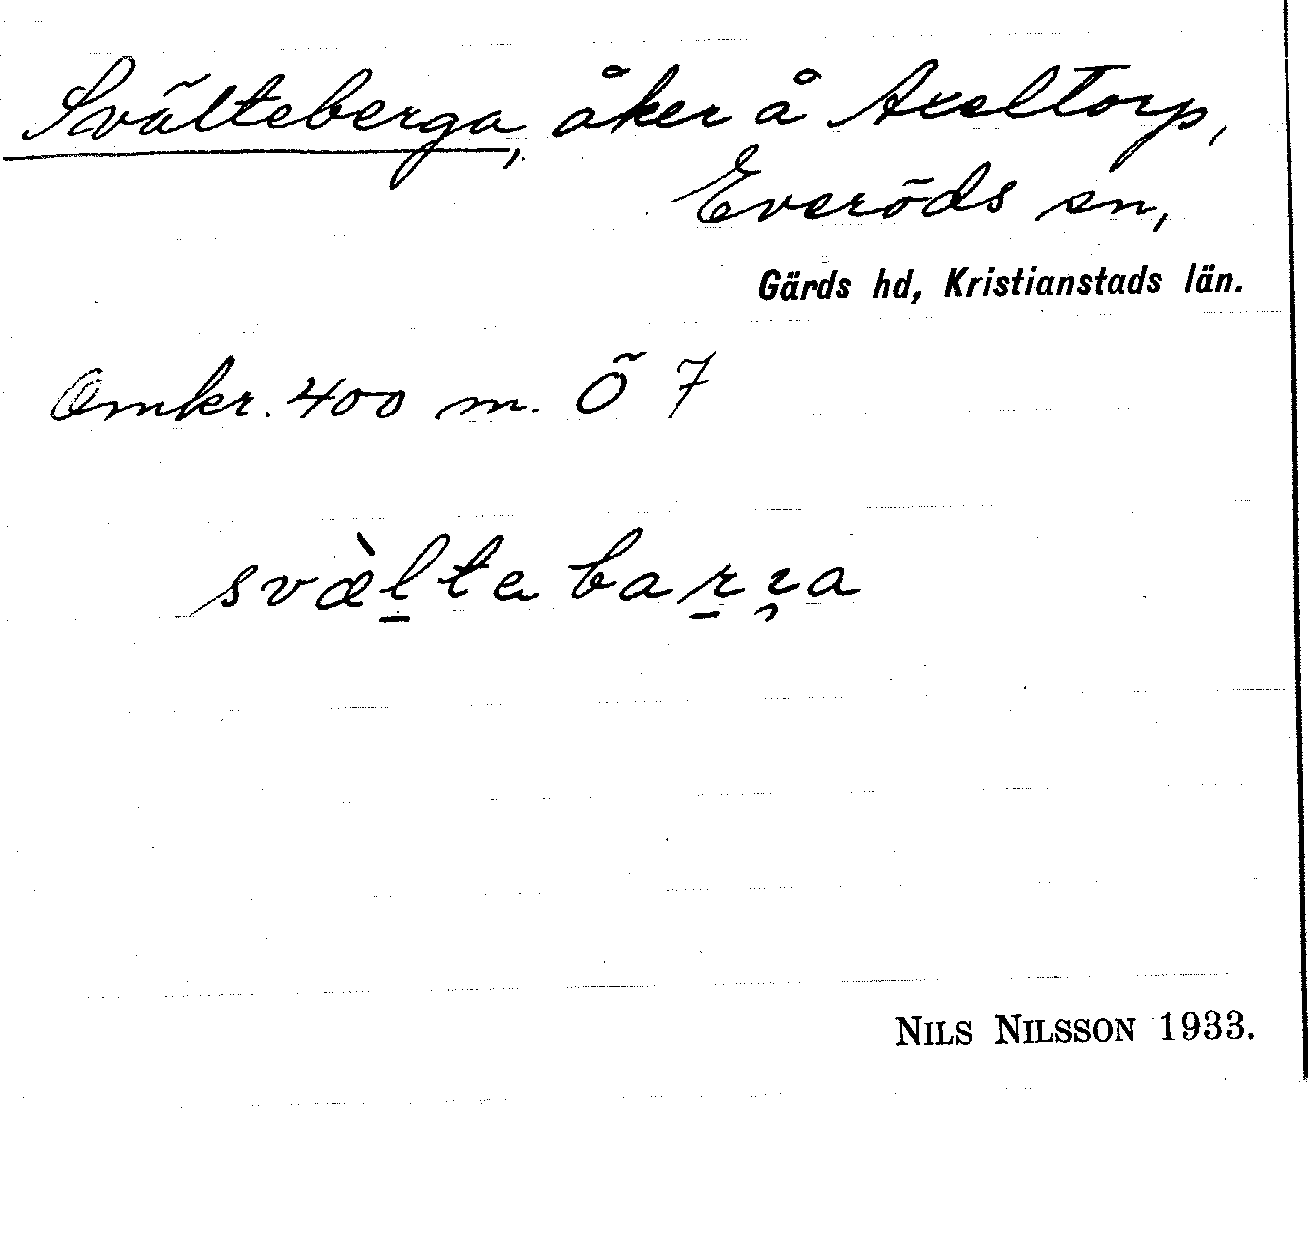 Svälteberga, åker å Axeltorp,
Everöds sn,
Gärds hd, Kristianstads län.
Omkr. 400 m. Ö 7
svæ̀l̠te barɹ̠a
NILS NILSSON 1933.